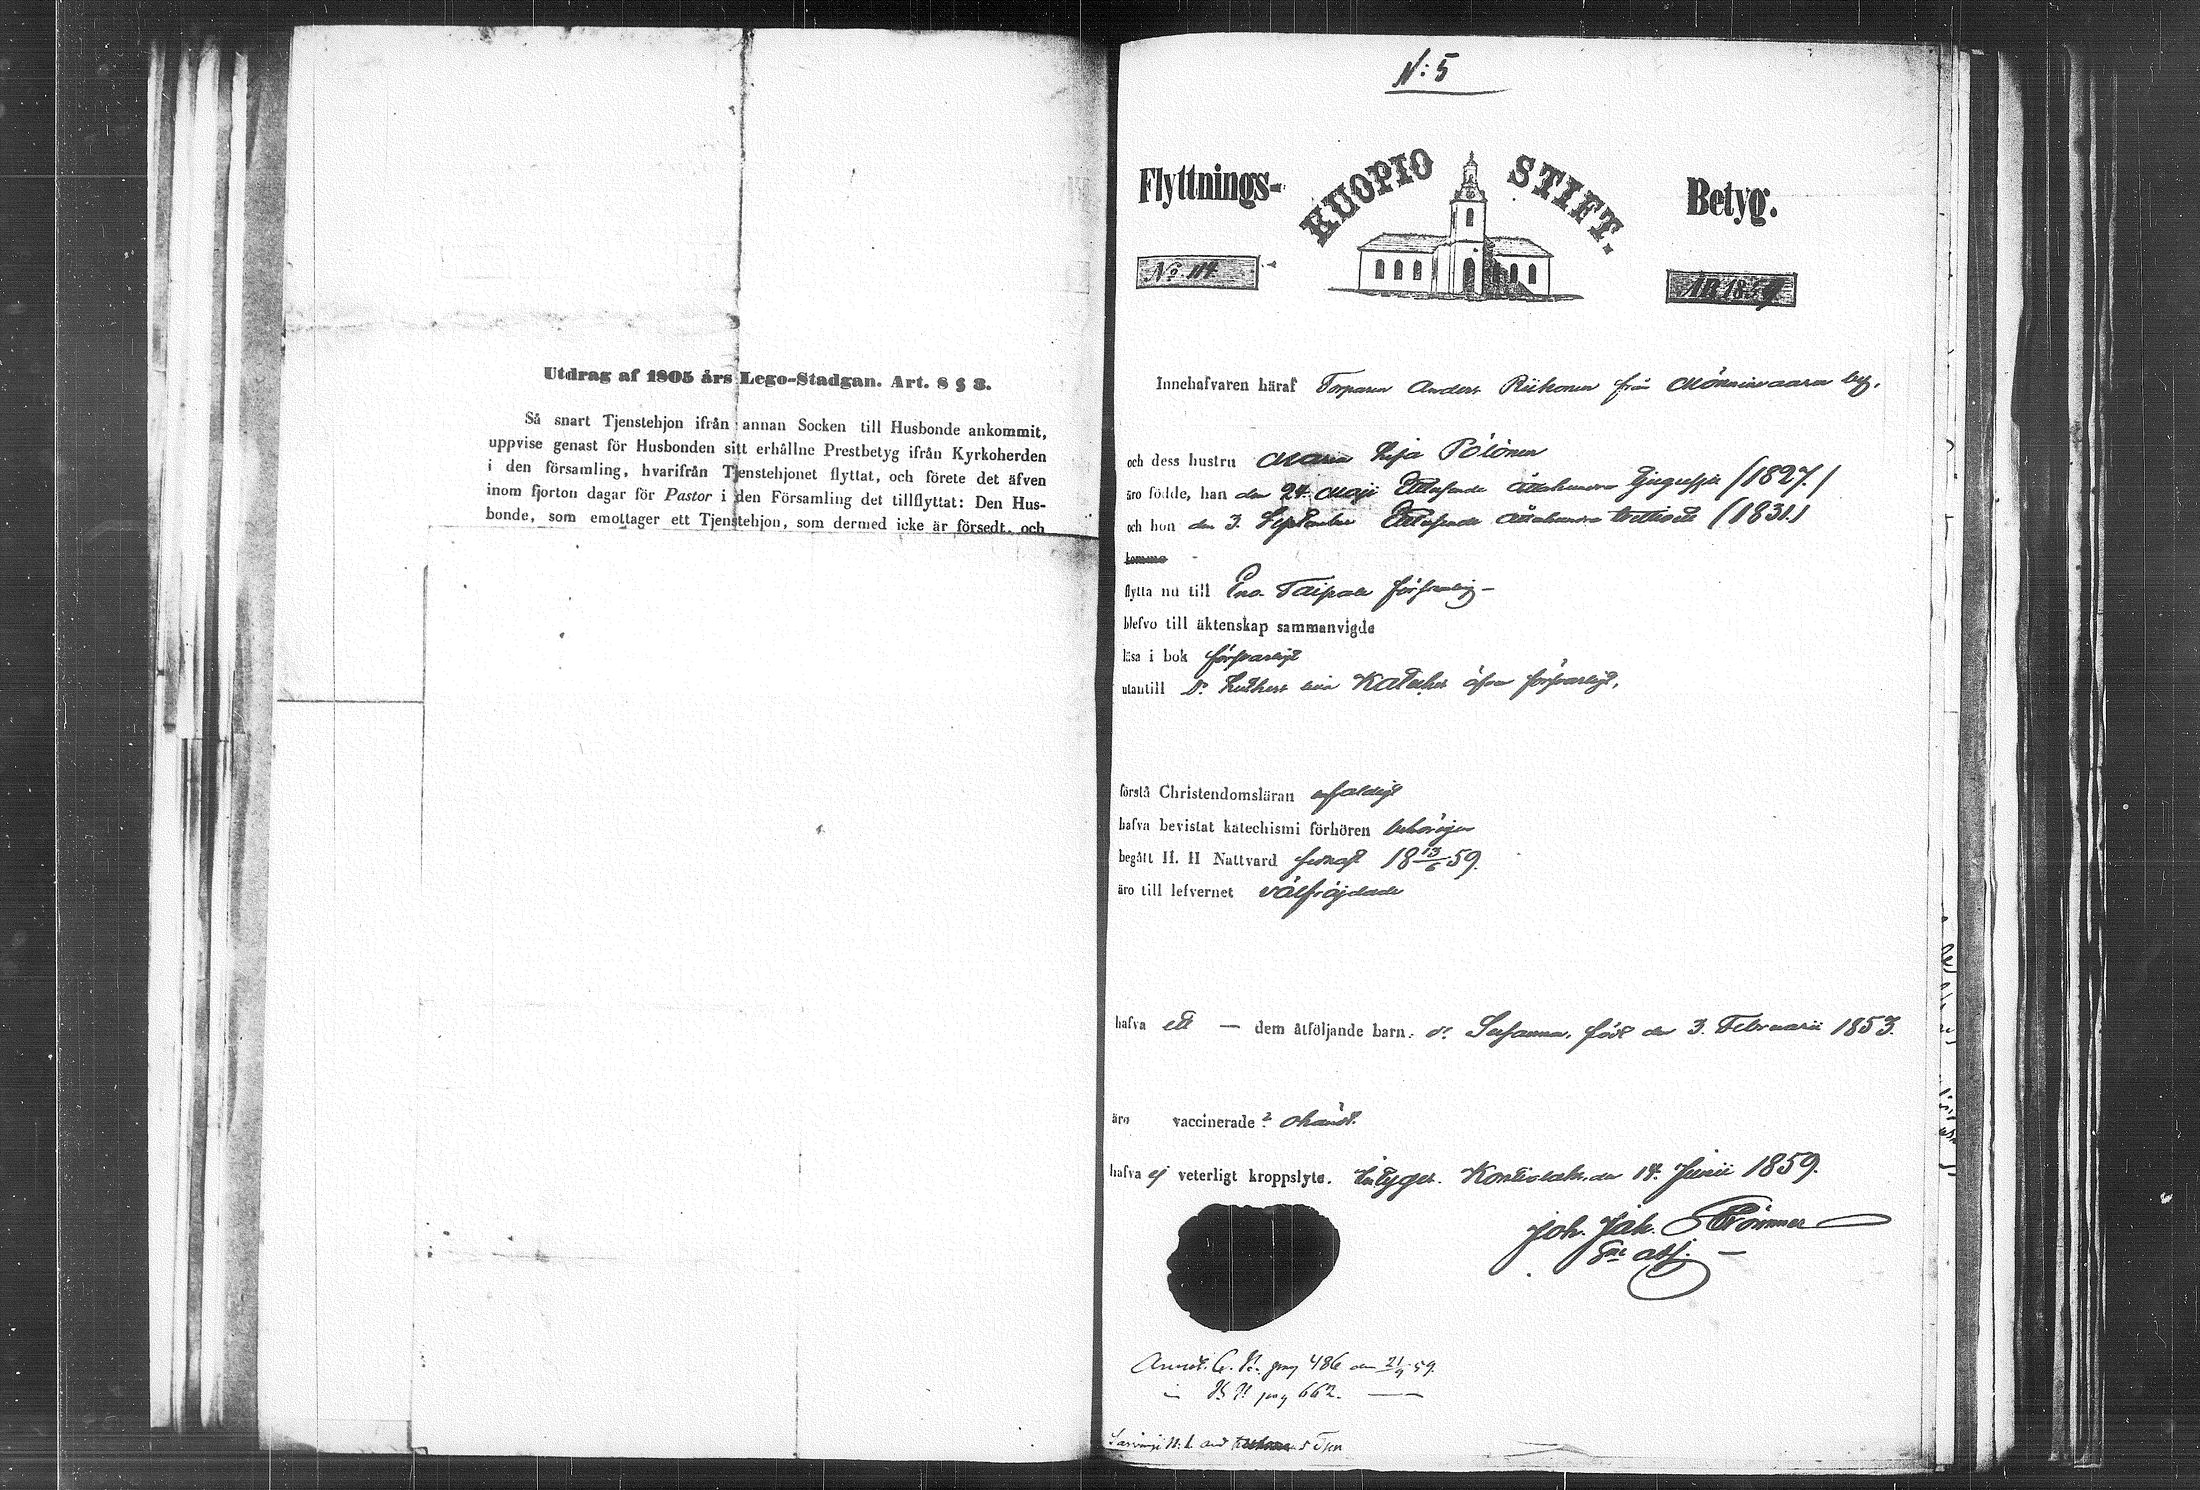 Utdrag af 1805 års Lego-Stadgan. Art. 8 § 3.
Så snart Tjenstehjon ifrån annan Socken till Husbonde ankommit,
uppvise genast för Husbonden sitt erhållne Prestbetyg ifrån Kyrkoherden
i den församling, hvarifrån Tjenstehjonet flyttat, och förete det äfven
inom fjorton dagar för Pastor i den Församling det tillflyttat: Den Hus-
bonde, som emottager ett Tjenstehjon, som dermed icke är försedt, och
N:5
Flyttnings- KUOPIO STIFT. Betyg.
No. 114. År 1859
Innehafvaren häraf Torparen Anders Riikonen från Mönninvaara by,
och dess hustru Maria Lisa Pölönen
äro födde, han den 24. Maji Ettusende Åttahundra tjugusju (1827.)
och hon den 3. September Ettusende Åttahundra trettioett (1831.)
komma
flytta nu till Eno Taipale församling
blefvo till äktenskap sammanvigde
läsa i bok försvarligt
utantill Dr Luthers lilla Kateches äfven försvarligt,
förstå Christendomsläran enfaldigt
hafva bevistat katechismi förhören behörigen
begått H. H Nattvard senast 18 13/6 59.
äro till lefvernet välfrejdade
hafva ett — dem åtföljande barn: dr Susanna, född den 3. Februarii 1853.
äro vaccinerade? okändt.
hafva ej veterligt kroppslyte. Intygar. Kontiolaks, den 14. Junii 1859.
Joh. Jak. Strömmer
Annot. C. B. pag 486 den 21/9 59.
pag 662. —